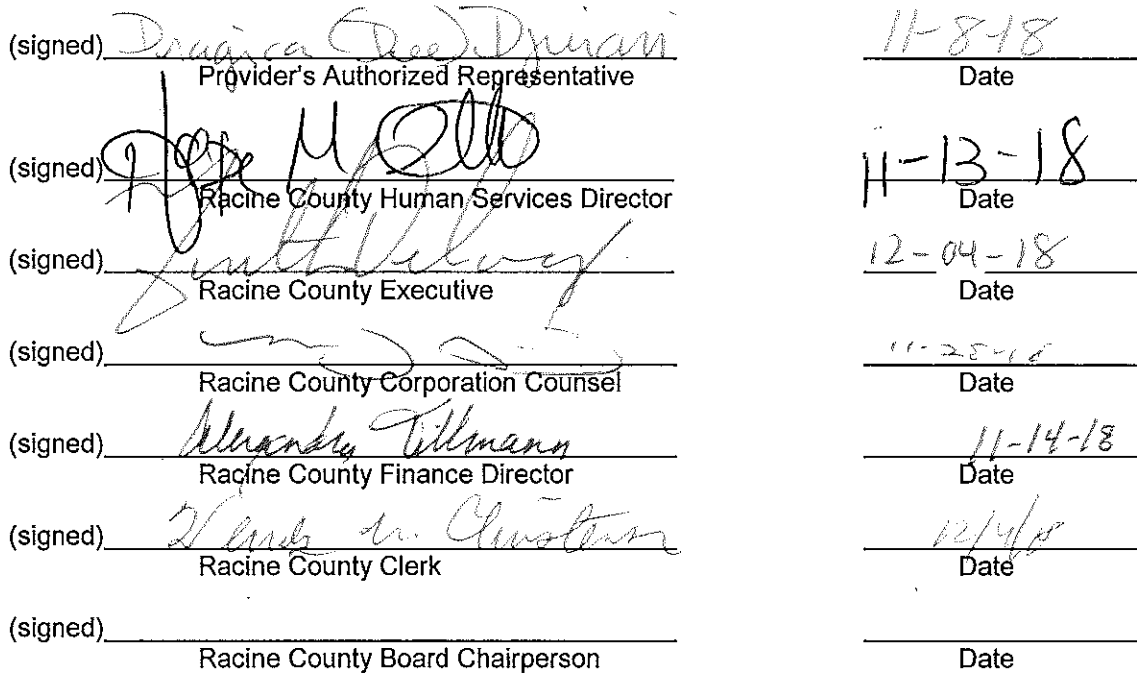 (signed) Dragica (Dee) 11-8-18
Provider's Authorized Representative Date
(signed) M 11-13-18
Racine County Human Services Director Date
(signed) 12-04-18
Racine County Executive Date
(signed)
Racine County Corporation Counsel Date
(signed) Alexandra Tillmann 11-14-18
Racine County Finance Director Date
(signed) Wendy M. Christensen 12/4/18
Racine County Clerk Date
(signed)
Racine County Board Chairperson Date